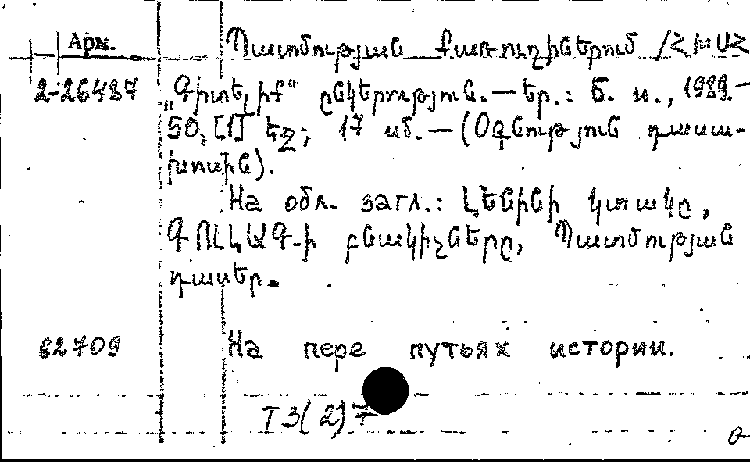 Арм.
Պատմության քառուղիներում /ՀԽՍՀ
2-26487 „Գիտելիք“ ընկերություն.—եր.: Б. и., 1989.—
50, [1] էջ; 17 սմ.—(Օգնություն դասա-
խոսին).
На обл. загл.: Լենինի կտակը,
ԳՈՒԼԱԳ-ի բնակիչները, Պատմության
դասեր.
82709 На пере путьях истории.
Т3(2)7